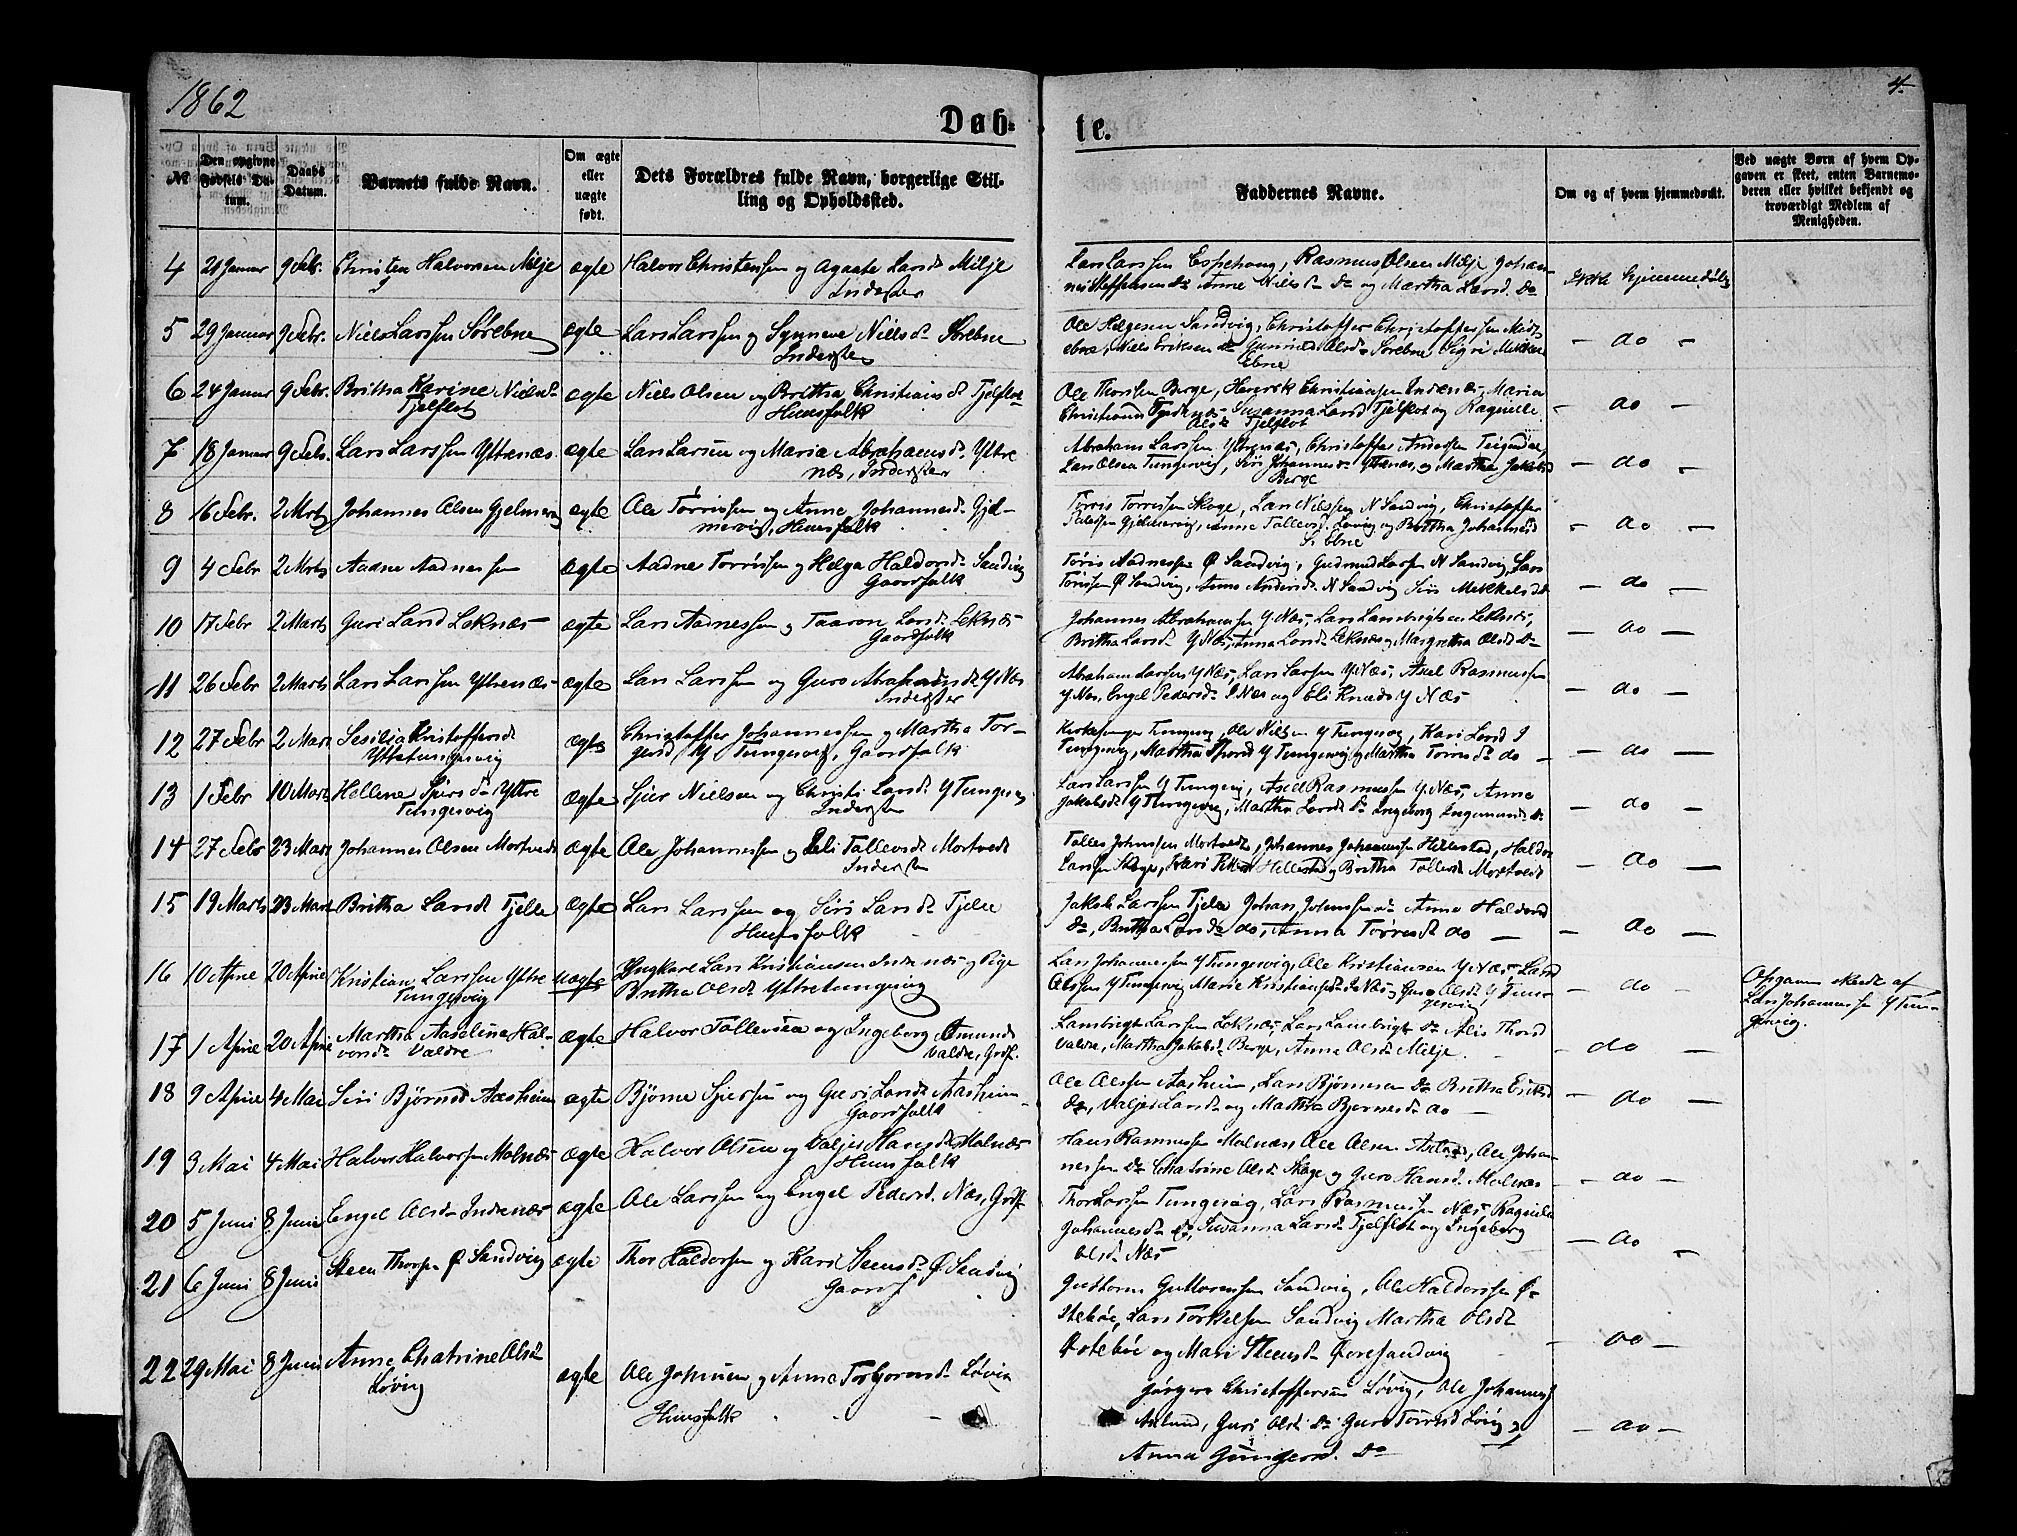 1862
4.
Døb-
te.
№
Den opgivne Fødsels Datum.
Daabs Datum.
Barnets fulde Navn.
Om ægte eller uægte født.
Dets Forældres fulde Navn, borgerlige Stilling og Opholdssted.
Faddernes Navne.
Om og af hvem hjemmedøbt.
Ved uægte Børn af hvem Opgaven er skeet, enten Barnemoderen eller hvilket bekjendt og troværdigt Medlem af Menigheden.
4 21 Januar 9 Febr. Christen Halvorsen Milje ægte Halvor Christensen og Agaate Larsd. Milje Lars Larsen Espehoug, Rasmus Olsen Milje Johan-
Inderster nes Steffensen do Anne Nielsd do og Martha Larsd. do Ikke hjemmedøbt
5 29 Januar 9 Febr. Niels Larsen Sørebne ægte Lars Larsen og Synneve Nielsd Sørebne Ole Helgesen Sandvig, Christoffer Christoffersen Midt-
Inderster ebne, Niels Eriksen do Olsd Sørebne Sigri
Ebne – do –
6 24 Januar 9 Febr. Britha Karine Nielsd. ægte Niels Olsen og Britha Christiansd Tjelflot Ole Thorsen Berge, Henrik Christiansen Indrenæs, Maria
Tjelflot Huusfolk Christiansd Susanna Larsd Tjelflot og Ragnille
Olsd. Tjelflot – do –
7 18 Januar 9 Febr. Lars Larsen Yttrenæs ægte Lars Larsen og Maria Abrahamsd. Yttre Abraham Larsen Yttrenæs, Christoffer
næs, Inderster Lars Olsen Tungesvig, Siri Johannesd Yttrenæs, og Martha Jakobsd
Berge – do –
8 16 Febr. 2 Mrts Johannes Olsen Gjelmervig ægte Ole Tørrissen og Anne Johannesd. Gjel- Tørris Tørrissen Skoge, Lars Nielsen N Sandvig, Christoffer
mervig, Huusfolk Pedersen Gjelmervig, Anne Tollevsd. Løvig og Britha Johannesd
S. Ebne – do –
9 4 Febr 2 Mrts Aadne Aadnessen ægte Aadne Torrissen og Helga Haldorsd. Sandvig Tøris Aadnessen Ø Sandvig, Gudmund Larsen N Sandvig, Lars
Gaardfolk Tørissen Ø Sandvig, Anne Andersd. N Sandvig Siri Mikkelsd do – do –
10 17 Febr 2 Marts Guri Larsd Leknæs ægte Lars Aadnessen og Taaron Larsd. Leknæs Johannes Abrahamsen Y Næs, Lars Lambrigtsen Leknæs,
Gaardfolk Britha Larsd. Y Næs, Anna Larsd. Leknæs og Margretha Olsd do – do –
11 26 Febr 2 Marts Lars Larsen Yttrenæs ægte Lars Larssen og Guro Abrahamsd. Y Næs Abraham Larsen Y Næs, Lars Larssen Y Næs, Axel Rasmussen
Inderster Y Næs, Engel Pedersd. I Næs og Eli Knudsd Y Næs – do –
12 27 Febr 2 Mars Sesilja Kristoffersd. ægte Christoffer Johannessen og Martha Tor-
Yttretungesvig Y Tungesvig, Gaardfolk Tungesvig, Ole Nilsen Y Tungesvig, Kari Larsd I
Tungesvig, Martha Y Tungesvig og Martha do – do –
13 1 Febr 10 Mars Hellene Sjursd. Yttre ægte Sjur Nielsen og Christi Larsd Y Tungesvig Lars Larsen Y Tungesvig, Axel Rasmussen Y Næs, Anne
Tungesvig Inderster Jakobsd Y Tungesvig, Martha Larsd do Ingeborg Ingemundsd do – do –
14 27 Febr 23 Mars Johannes Olsen Mortvedt ægte Ole Johannessen og Eli Tollevsd Mortvedt Tolles Johnsen Mortvedt, Johannes Johannessen Hellestad, Haldor
Inderster Larsen Skoge, Kari Hellestad og Britha Tollevsd Mortvedt – do –
15 19 Marts 23 Mars Britha Larsd Tjelle ægte Lars Larssen og Siri Larsd Tjelle Jakob Larssen Tjelle Johan Johnssen do Anna Haldorsd
Huusfolk do, Britha Larsd do, Anna Tørresd do – – do –
16 10 Aprie 20 Aprie Kristian Larssen Yttre uægte Ungkarl Lars Kristiansen Indrenæs og Pige Lars Johannessen Y Tungesvig, Ole Kristiansen Y Næs, Lars
Tungesvig Britha Olsd Yttretungesvig Olssen Y Tungesvig Marie Kristiansd I Næs og Guro Olsd. Y Tun-
gesvig – do – Opgaven skeedt af
Lars Johannessen Y Tun-
gesvig.
17 1 Aprie 20 Aprie Martha Aaselina Hal- ægte Halvor Tollevsen og Ingeborg Amunds Lambrigt Larssen Leknæs, Lars Lambrigts. do Alis Thorsd
vorsd. Valdre Valdre, Grdf. Valdre, Martha Jakobsd. Berge, Anna Olsd. Milje. – do –
18 9 Aprie 4 Mai Siri Bjørnsd Aasheim ægte Bjørne Sjursen og Guri Larsd Aasheim Ole Olssen Aasheim, Lars Bjørnesen do Britha Eriksd
Gaardfolk do, Valjer Larsd og Martha Bjørnesd do – – do –
19 3 Mai 4 Mai Halvor Halvorsen Molnæs ægte Halvor Olsen og Valjer Hansd. Molnæs Hans Rasmussen Molnæs, Ole Olsen Axland, Ole Johan-
Huusfolk nessen do Chatrine Olsd. Skoge og Guro Hansd. Molnæs – do –
20 5 Juni 8 Juni Engel Olsd. Indrenæs ægte Ole Larssen og Engel Pedersd. Næs, Grdf. Thor Larssen Tungesvig, Lars Rasmussen Næs, Ragnilla
Johannesd. do, Susanna Larsd. Tjelflot og Ingeborg
Olsd. Næs – do –
21 6 Juni 8 Juni Steen Thorsen Ø Sandvig ægte Thor Haldorsen og Kari Steensd. Ø Sandvig
Gaardf. Guttorm Guttormsen Sandvig, Ole Haldorssen Ø-
stebøe, Lars Torkelsen Sandvig Martha Olsd
Østebøe og Mari Steensd Øvresandvig – do –
22 29 Mai 8 Juni Anne Chatrine Olsd. ægte Ole Johnsen og Anna Torbjørnsd Løvig
Løvig Huusfolk Jørgen Christoffersen Løvig, Ole Johannes
Axland, Guri Olsd do Guro Tørresd Løvig &
Anna do – do –